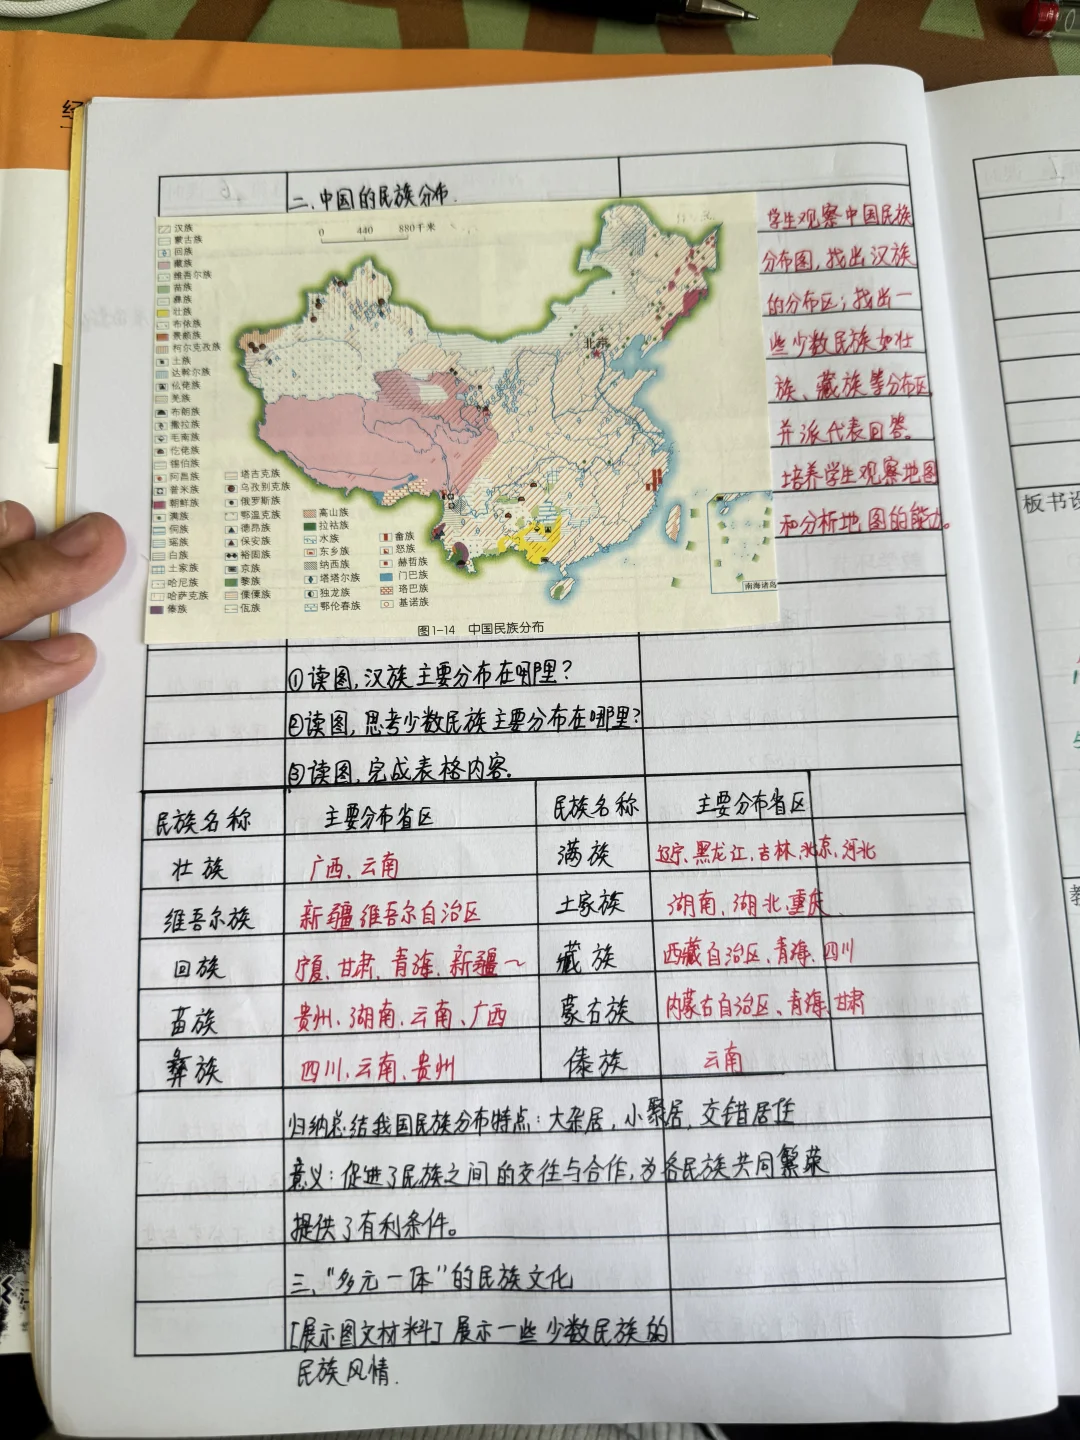 经
二、中国的民族分布.
0 440 880千米
北京
南海诸岛
汉族
蒙古族
回族
藏族
维吾尔族
苗族
彝族
壮族
布依族
景颇族
柯尔克孜族
土族
达斡尔族
仫佬族
羌族
布朗族
撒拉族
毛南族
仡佬族
锡伯族
阿昌族
普米族
朝鲜族
满族
侗族
瑶族
白族
土家族
哈尼族
哈萨克族
傣族
塔吉克族
乌孜别克族
俄罗斯族
鄂温克族
德昂族
保安族
裕固族
京族
黎族
傈僳族
佤族
高山族
拉祜族
水族
东乡族
纳西族
塔塔尔族
独龙族
鄂伦春族
畲族
怒族
赫哲族
门巴族
珞巴族
基诺族
图1-14 中国民族分布
学生观察中国民族
分布图,找出汉族
的分布区;找出一
些少数民族如壮
族、藏族等分布区,
并派代表回答。
培养学生观察地图
和分析地图的能力。
①读图,汉族主要分布在哪里?
②读图,思考少数民族主要分布在哪里?
③读图,完成表格内容.
民族名称 主要分布省区 民族名称 主要分布省区
壮族 广西、云南 满族 辽宁、黑龙江、吉林、北京、河北
维吾尔族 新疆维吾尔自治区 土家族 湖南、湖北、重庆
回族 宁夏、甘肃、青海、新疆~ 藏族 西藏自治区、青海、四川
苗族 贵州、湖南、云南、广西 蒙古族 内蒙古自治区、青海、甘肃
彝族 四川、云南、贵州 傣族 云南
归纳总结我国民族分布特点:大杂居,小聚居,交错居住
意义:促进了民族之间的交往与合作,为各民族共同繁荣
提供了有利条件。
三、“多元一体”的民族文化
[展示图文材料]展示一些少数民族的
民族风情.
板书设